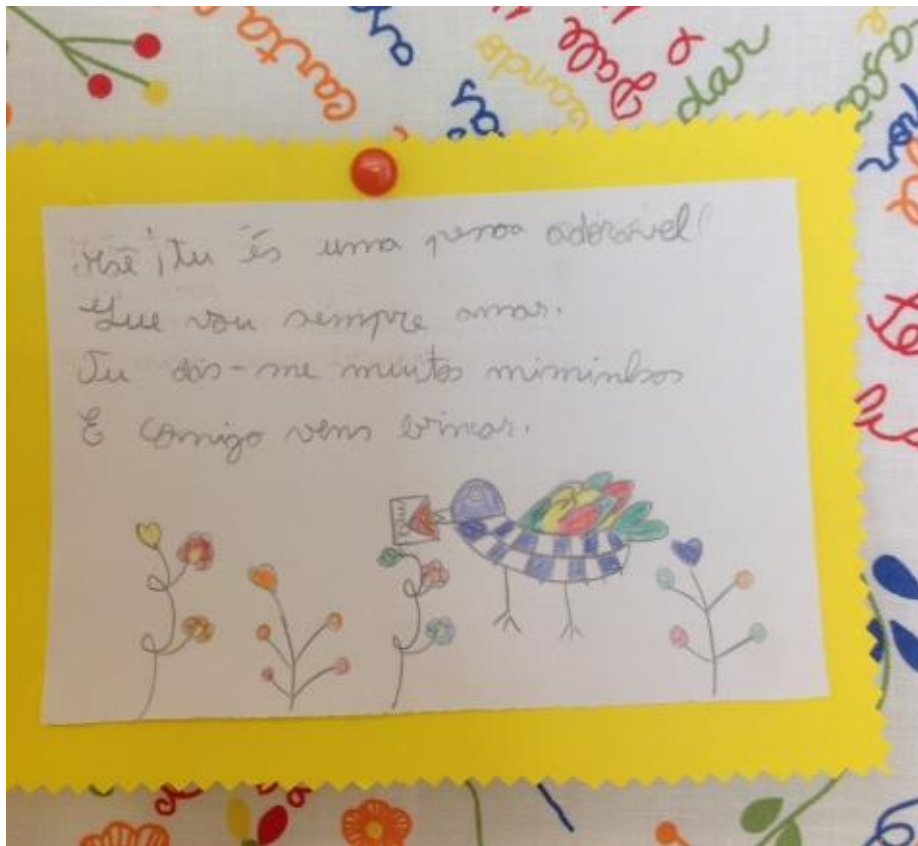 carta
dar
Mãe, tu és uma pessoa adorável!
Que vou sempre amar.
Tu dás-me muitos miminhos
E comigo vens brincar.